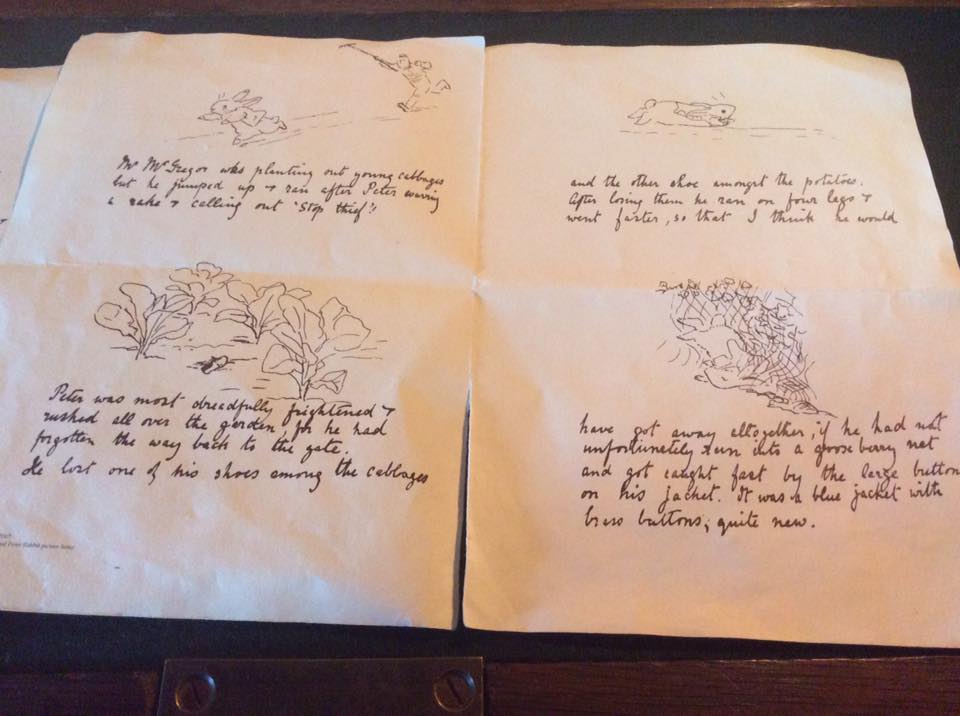 Mr McGregor was planting out young cabbages
but he jumped up & ran after Peter waving
a rake & calling out 'Stop thief'!
Peter was most dreadfully frightened &
rushed all over the garden, for he had
forgotten the way back to the gate.
He lost one of his shoes among the cabbages
Peter Rabbit picture letter
and the other shoe amongst the potatoes.
After losing them he ran on four legs &
went faster, so that I think he would
have got away altogether, if he had not
unfortunately run into a gooseberry net
and got caught fast by the large buttons
on his jacket. It was a blue jacket with
brass buttons; quite new.